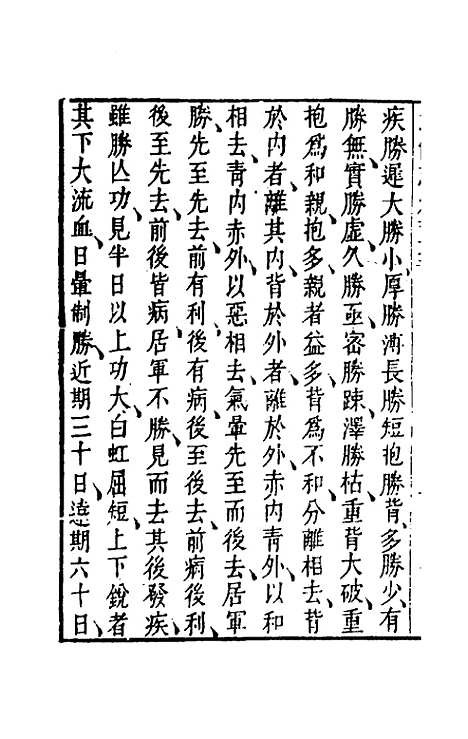 疾勝遲、大勝小、厚勝薄、長勝短、抱勝背、多勝少、有
勝無、實勝虛、久勝亟、密勝踈、澤勝枯、重背大破、重
抱爲和親、抱多親者益多、背爲不和、分離相去、背
於内者離其内、背於外者離於外、赤内靑外以和
相去、靑内赤外以惡相去、氣暈先至而後去、居軍
勝、先至先去、前有利後有病、後至後去、前病後利、
後至先去、前後皆病、居軍不勝、見而去其後發疾、
雖勝亾功、見半日以上功大、白虹屈短、上下銳者
其下大流血、日暈制勝、近期三十日、遠期六十日、